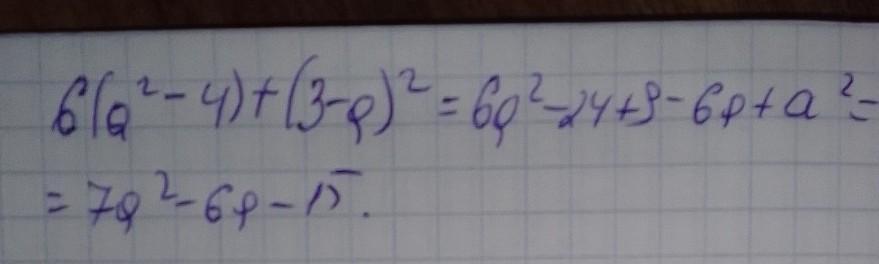 6(a²-4)+(3-a)²=6a²-24+9-6a+a²=
=7a²-6a-15.